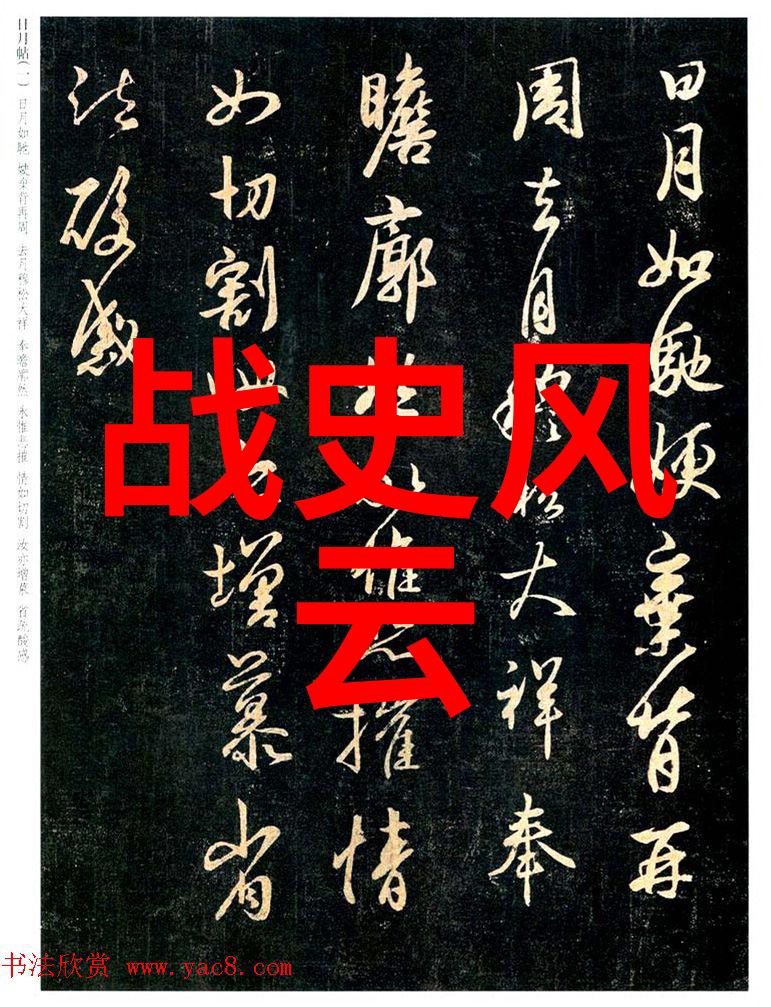 日月如馳嫂棄背再
周去月穆松大祥奉
瞻廓然永惟悲摧情
如切割汝亦增慕省
疏酸感
战史风
云
日月帖(一) 日月如馳 嫂棄背再周 去月穆松大祥 奉瞻廓然 永惟悲摧 情如切割 汝亦增慕 省疏酸感
书法欣赏 www.yac8.com